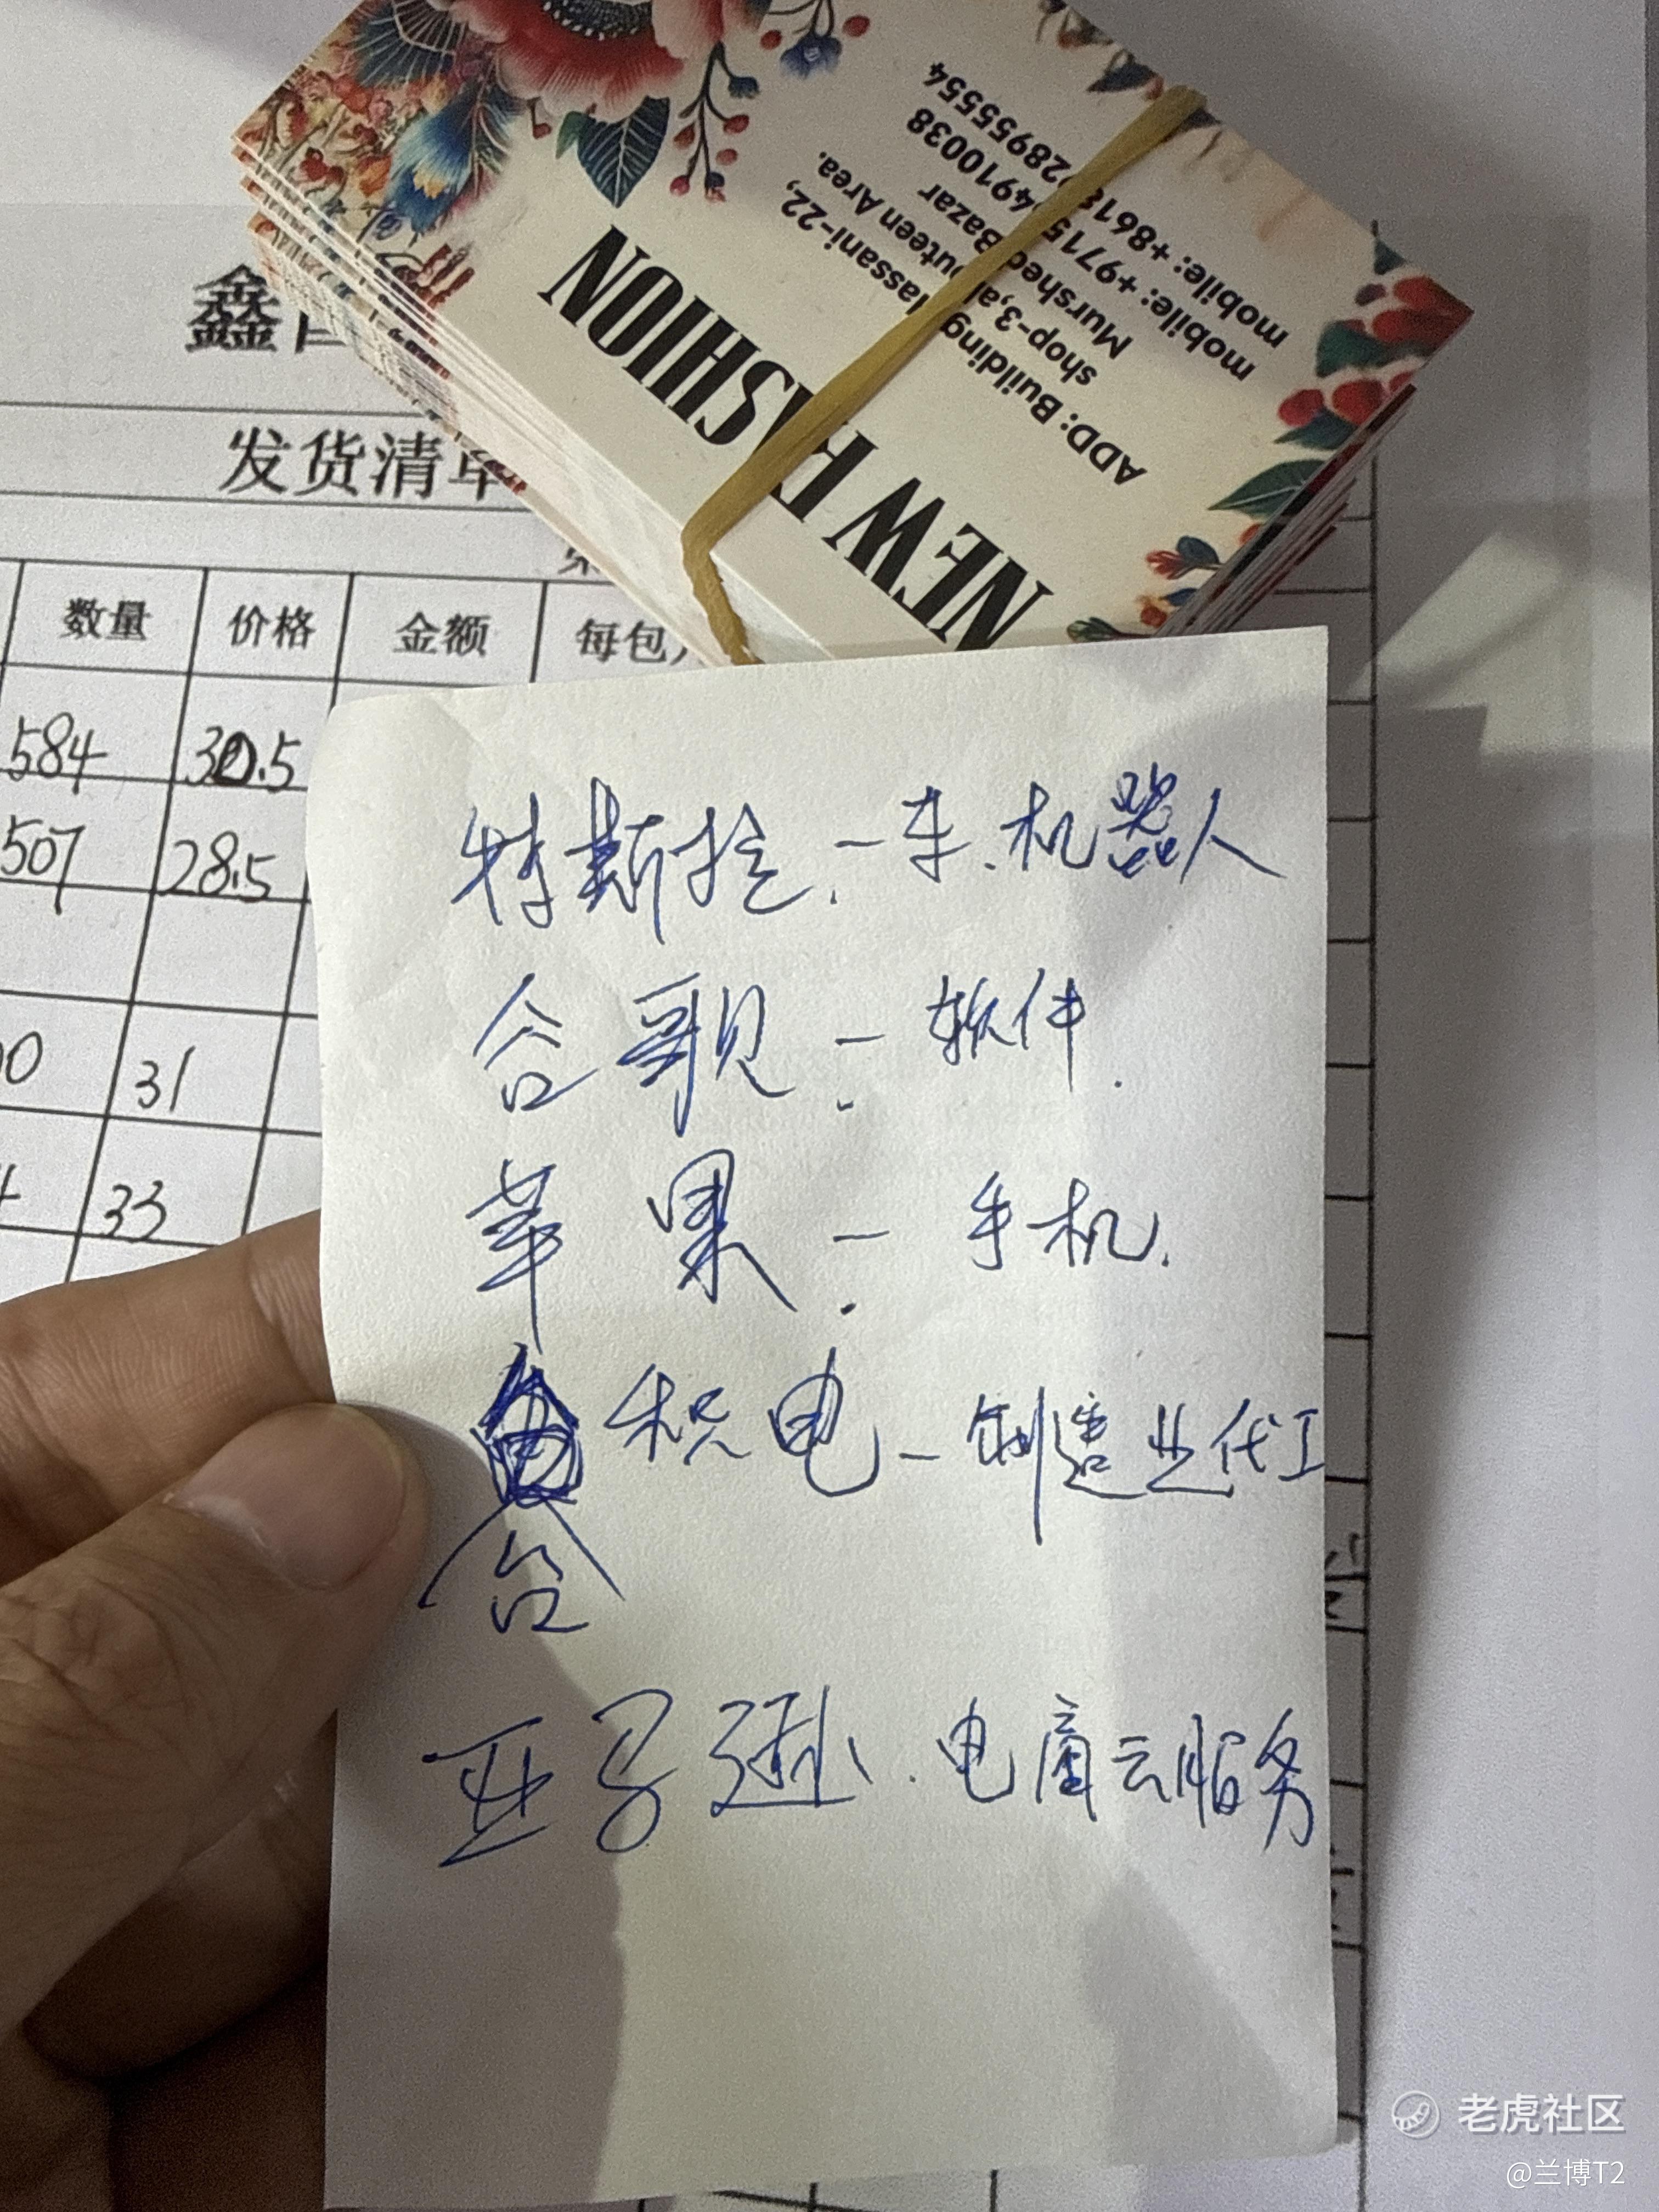 鑫
发货清单
数量 价格 金额 每包
584 30.5
507 28.5
31
33
NEW FASHION
ADD: Building
shop-3,al
Murshed Bazar
mobile: +9715
mobile: +8618
特斯拉.-车.机器人
谷歌:-软件.
苹果:-手机.
积电-制造业代工
台
亚马逊.电商云服务
老虎社区
@兰博T2